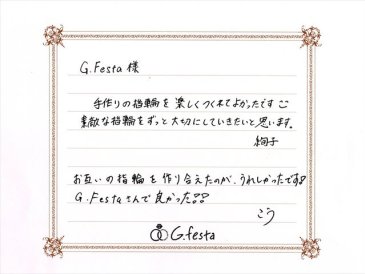 G.Festa 様
手作りの指輪を楽しくつくれてよかったです
素敵な指輪をずっと大切にしていきたいと思います。
絢子
お互いの指輪を作り合えたのが、うれしかったです!
G.Festaさんで良かった!!
こう
G.festa